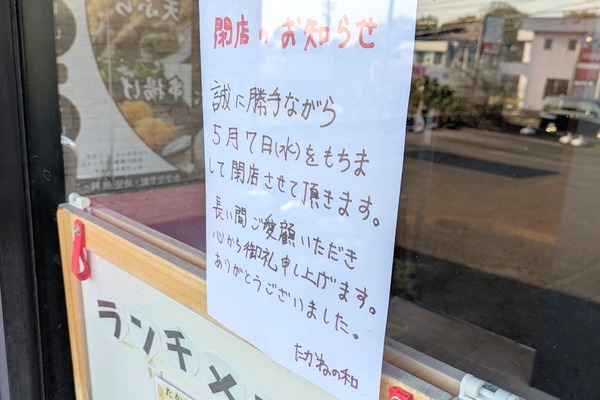 天ぷら
串揚げ
閉店のお知らせ
誠に勝手ながら
5月7日(水)をもちま
して閉店させて頂きます。
長い間ご愛顧いただき
心から御礼申し上げます。
ありがとうございました。
たかねの和
ランチメ